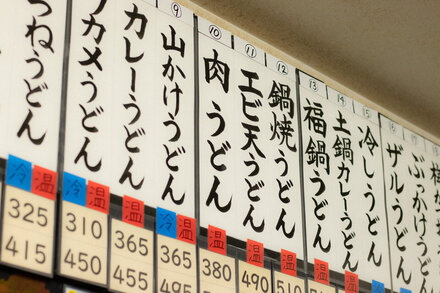 つねうどん
冷 温
325
415
ワカメうどん
冷 温
310
450
カレーうどん
温
365
455
⑨
山かけうどん
冷 温
365
495
⑩
肉うどん
温
380
⑪
エビ天うどん
温
490
⑫
鍋焼うどん
温
510
⑬
福鍋うどん
温
⑭
土鍋カレーうどん
温
⑮
冷しうどん
冷
ザルうどん
ぶっかけうどん